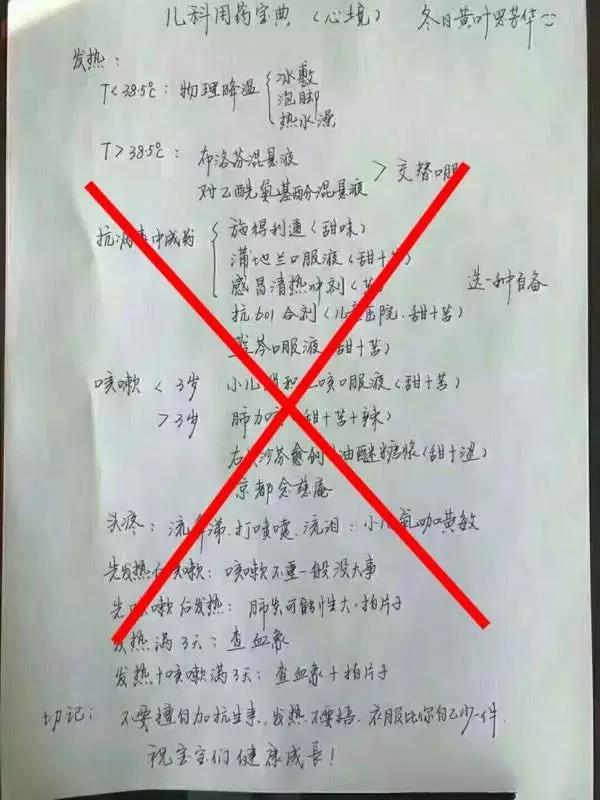 儿科用药宝典(心境) 冬日黄叶
发热:
T<38.5℃: 物理降温 冰敷
泡脚
热水澡
T>38.5℃: 布洛芬混悬液
对乙酰氨基酚混悬液 > 交替口服
抗病毒中成药 施得利通(甜味)
蒲地兰口服液(甜+苦)
感冒清热冲剂(苦) 选一种自备
抗601合剂(儿童医院.甜+苦)
蓝芩口服液(甜+苦)
咳嗽 <3岁 小儿 咳口服液(甜+苦)
>3岁 肺力咳(甜+苦+辣)
右美沙芬愈创 油醚糖浆(甜+涩)
京都念慈庵
头疼: 流鼻涕.打喷嚏.流泪: 小儿氨咖黄敏
先发热后咳嗽: 咳嗽不重一般没大事
先咳嗽后发热: 肺炎可能性大.拍片子
发热满3天: 查血象
发热+咳嗽满3天: 查血象+拍片子
切记: 不要擅自加抗生素.发热不要捂.衣服比你自己少一件.
祝宝宝们健康成長!